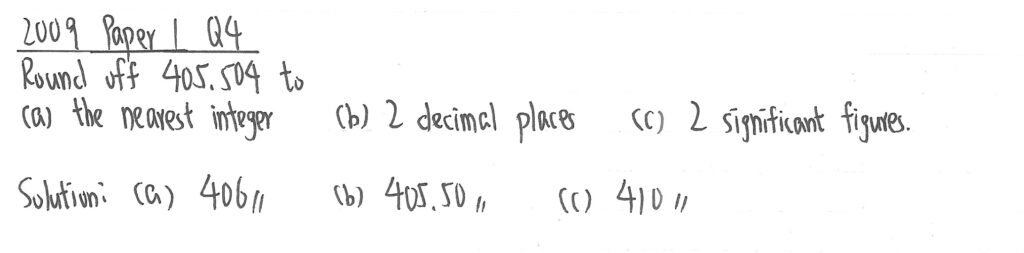 2009 Paper 1 Q4
Round off 405.504 to
(a) the nearest integer (b) 2 decimal places (c) 2 significant figures.
Solution: (a) 406,, (b) 405.50,, (c) 410,,